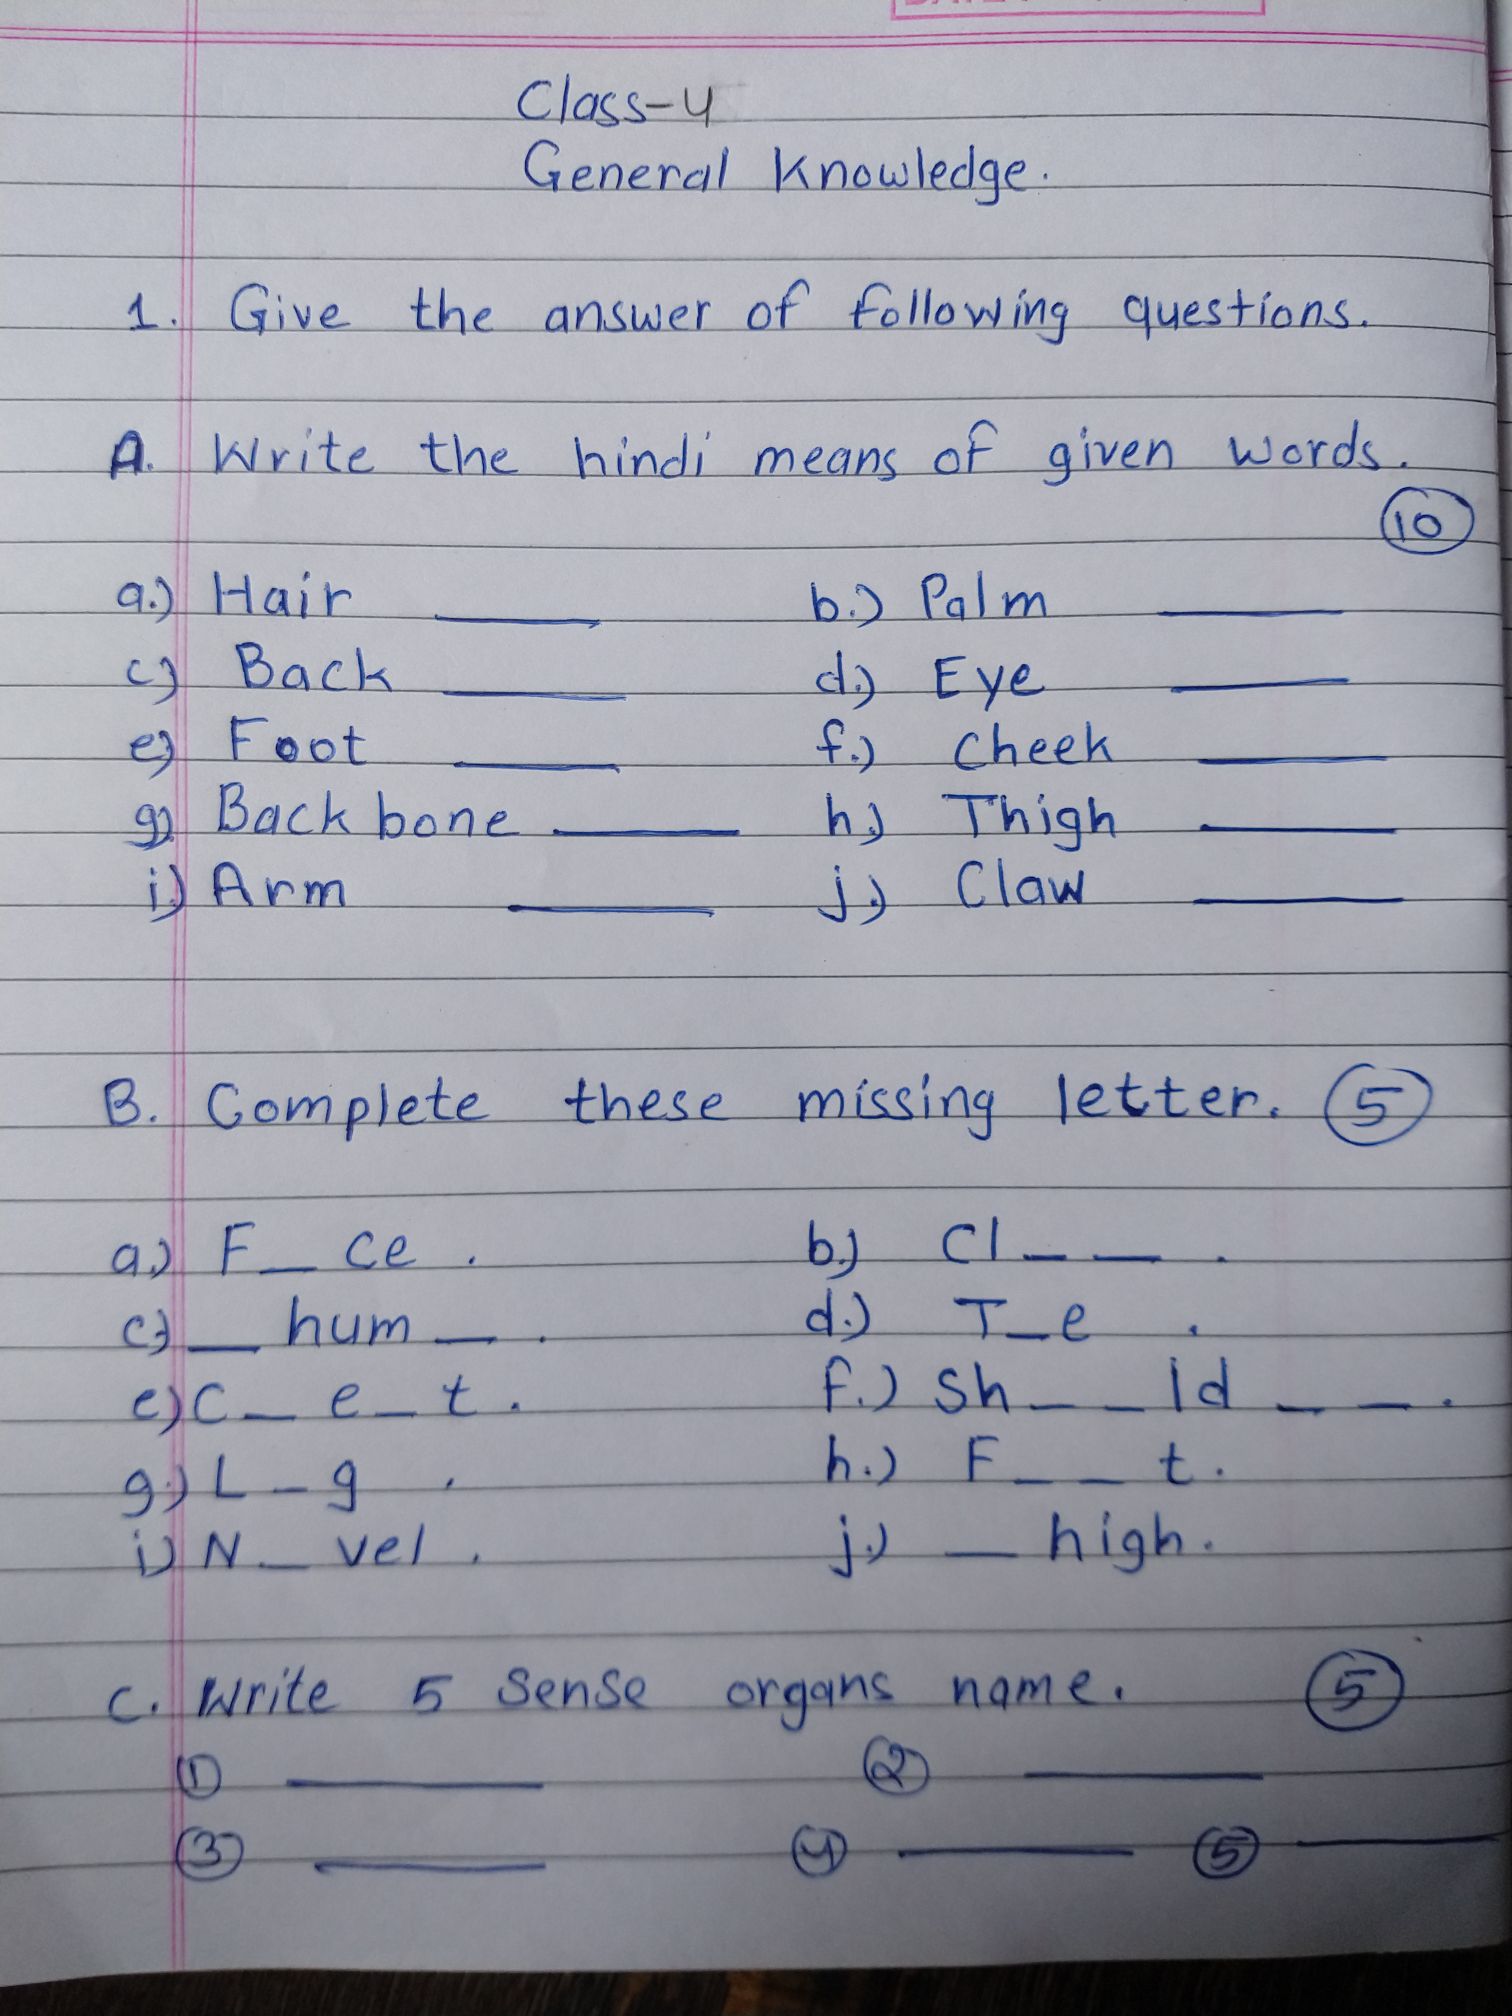 Class-4
General Knowledge.
1. Give the answer of following questions.
A. Write the hindi means of given words.
10
a.) Hair ____ b.) Palm ____
c) Back ____ d.) Eye ____
e) Foot ____ f.) Cheek ____
g) Back bone ____ h.) Thigh ____
i.) Arm ____ j.) Claw ____
B. Complete these missing letter. 5
a.) F_ce . b.) Cl_ _ .
c.) _hum_ . d.) T_e .
e) C_e_t. f.) Sh_ _ld_ _.
g.) L_g . h.) F_ _t.
i.) N_vel . j.) _high.
C. Write 5 Sense organs name. 5
1 ____ 2 ____
3 ____ 4 ____ 5 ____